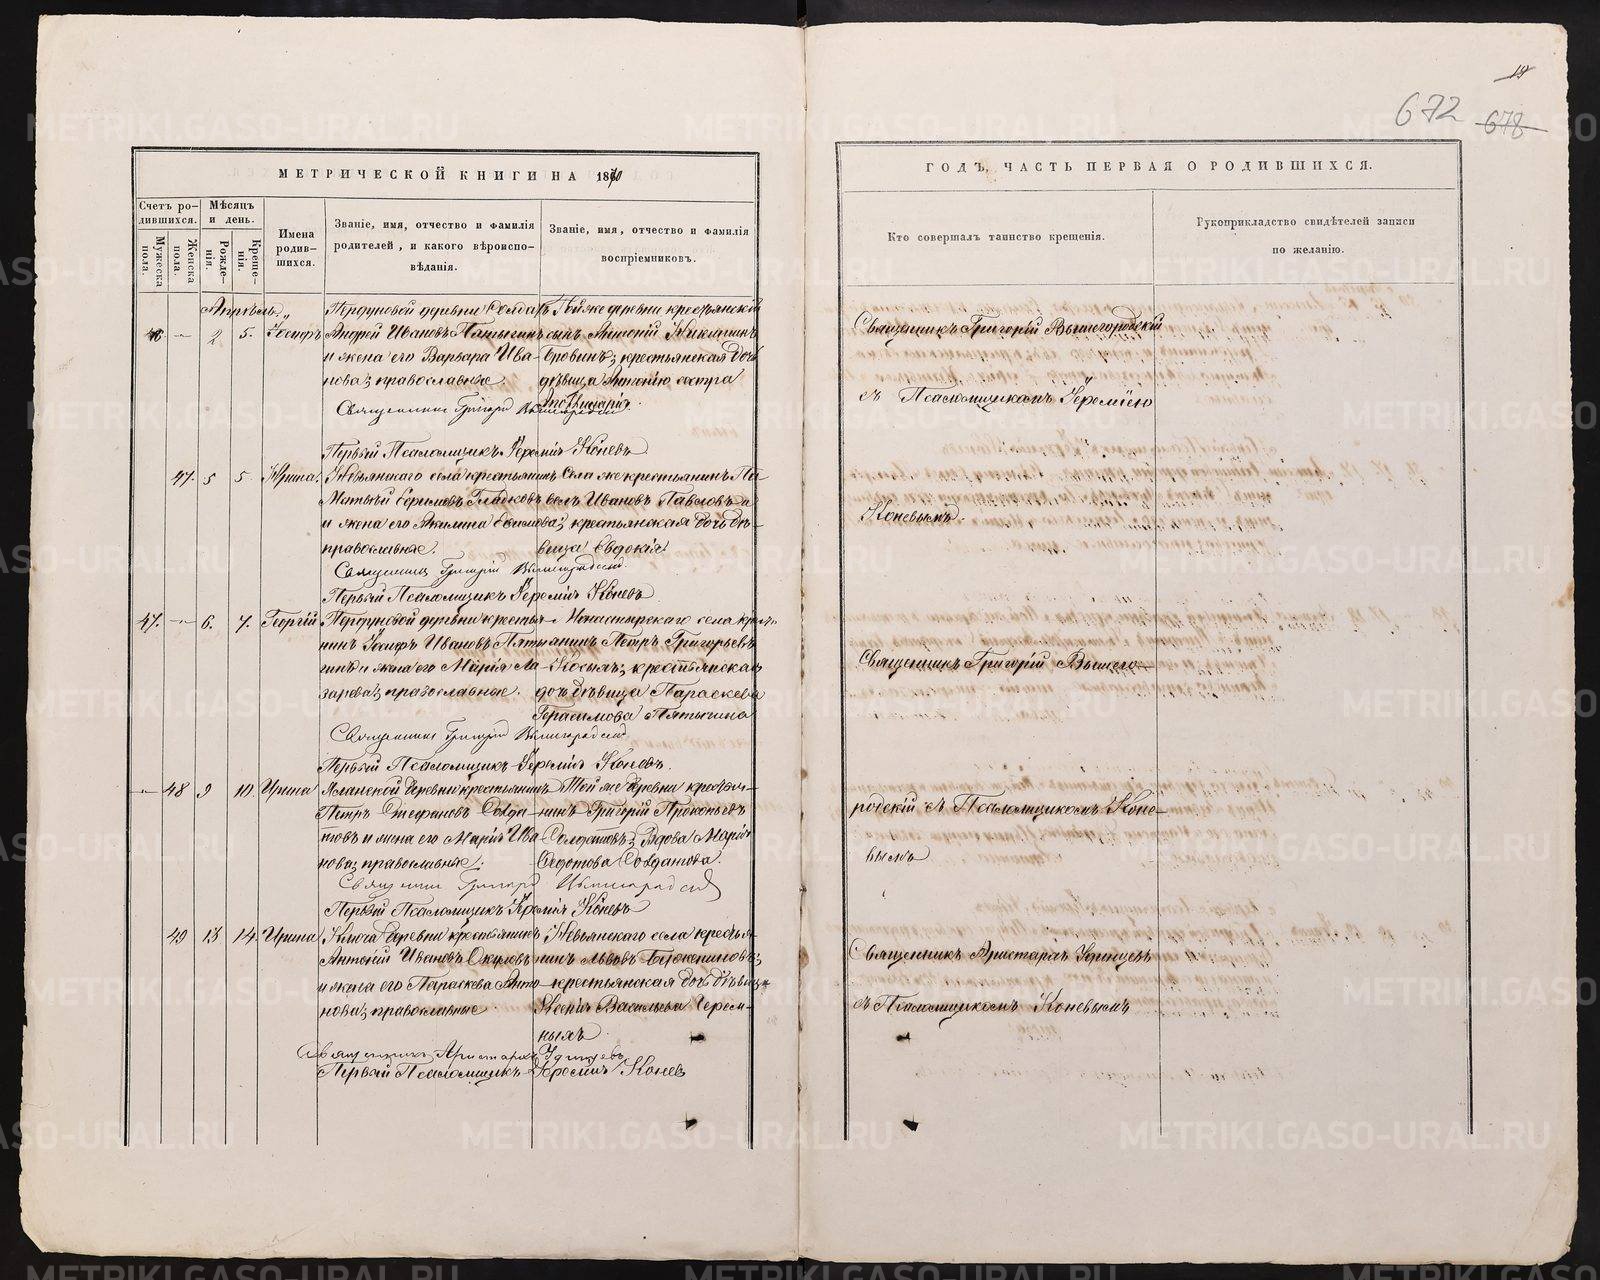 19
672 678
МЕТРИЧЕСКОЙ КНИГИ НА 1870
Счетъ родившихся.
Мужеска пола.
Женска пола.
Мѣсяцъ и день.
Рожденія.
Крещенія.
Имена родившихся.
Званіе, имя, отчество и фамилія
родителей, и какого вѣроиспо-
вѣданія.
Званіе, имя, отчество и фамилія
воспріемниковъ.
Апрѣль
46 2 5. Іосифъ
деревни Солдатъ
Андрей Ивановъ Пятыгинъ
и жена его Варвара Ива-
нова; православные.
Той же деревни крестьянскій
сынъ
крестьянская дочь
дѣвица сестра
Священникъ Григорій Вышегородскій
Первый Псаломщикъ Іеремія Коневъ
47. 5 5 Ирина.
Невьянскаго села крестьянинъ
Матвѣй Ефимовъ Гладковъ
и жена его Акилина
православные.
Села же крестьянинъ Па-
велъ Ивановъ Павловъ
крестьянская дочь дѣ-
вица Евдокія
Священникъ Григорій Вышегородскій
Первый Псаломщикъ Іеремія Коневъ
47. 6. 7. Георгій
деревни крестья-
нинъ Іосифъ Ивановъ Пяты-
гинъ и жена его Марія Ла-
зарева; православные.
Монастырскаго села крестья-
нинъ Петръ Григорьевъ
Косыхъ; крестьянская
дочь дѣвица Параскева
Герасимова Пятыгина
Священникъ Григорій Вышегородскій
Первый Псаломщикъ Іеремія Коневъ.
48 9 10. Ирина
деревни крестьянинъ
Петръ Стефановъ Солда-
товъ и жена его Марія Ива-
нова; православные.
Той же деревни крестья-
нинъ Григорій Прокопьевъ
Солдатовъ; вдова Марія
Федотова Солдатова.
Священникъ Григорій Вышегородскій
Первый Псаломщикъ Іеремія Коневъ
49 13 14. Ирина
Ключа деревни крестьянинъ
Антоній Ивановъ Окуловъ
и жена его Параскева Анто-
нова; православные
Невьянскаго села крестья-
нинъ Львовъ
крестьянская дочь дѣвица
Ксенія Васильева Черем-
ныхъ
Священникъ Аристархъ Удинцевъ
Первый Псаломщикъ Іеремія Коневъ
ГОДЪ, ЧАСТЬ ПЕРВАЯ О РОДИВШИХСЯ.
Кто совершалъ таинство крещенія.
Рукоприкладство свидѣтелей записи
по желанію.
Священникъ Григорій Вышегородскій
съ Псаломщикомъ Іереміею
Коневымъ.
Священникъ Григорій Вышего-
родскій съ Псаломщикомъ Коне-
вымъ
Священникъ Аристархъ Удинцевъ
съ Псаломщикомъ Коневымъ
METRIKI.GASO-URAL.RU